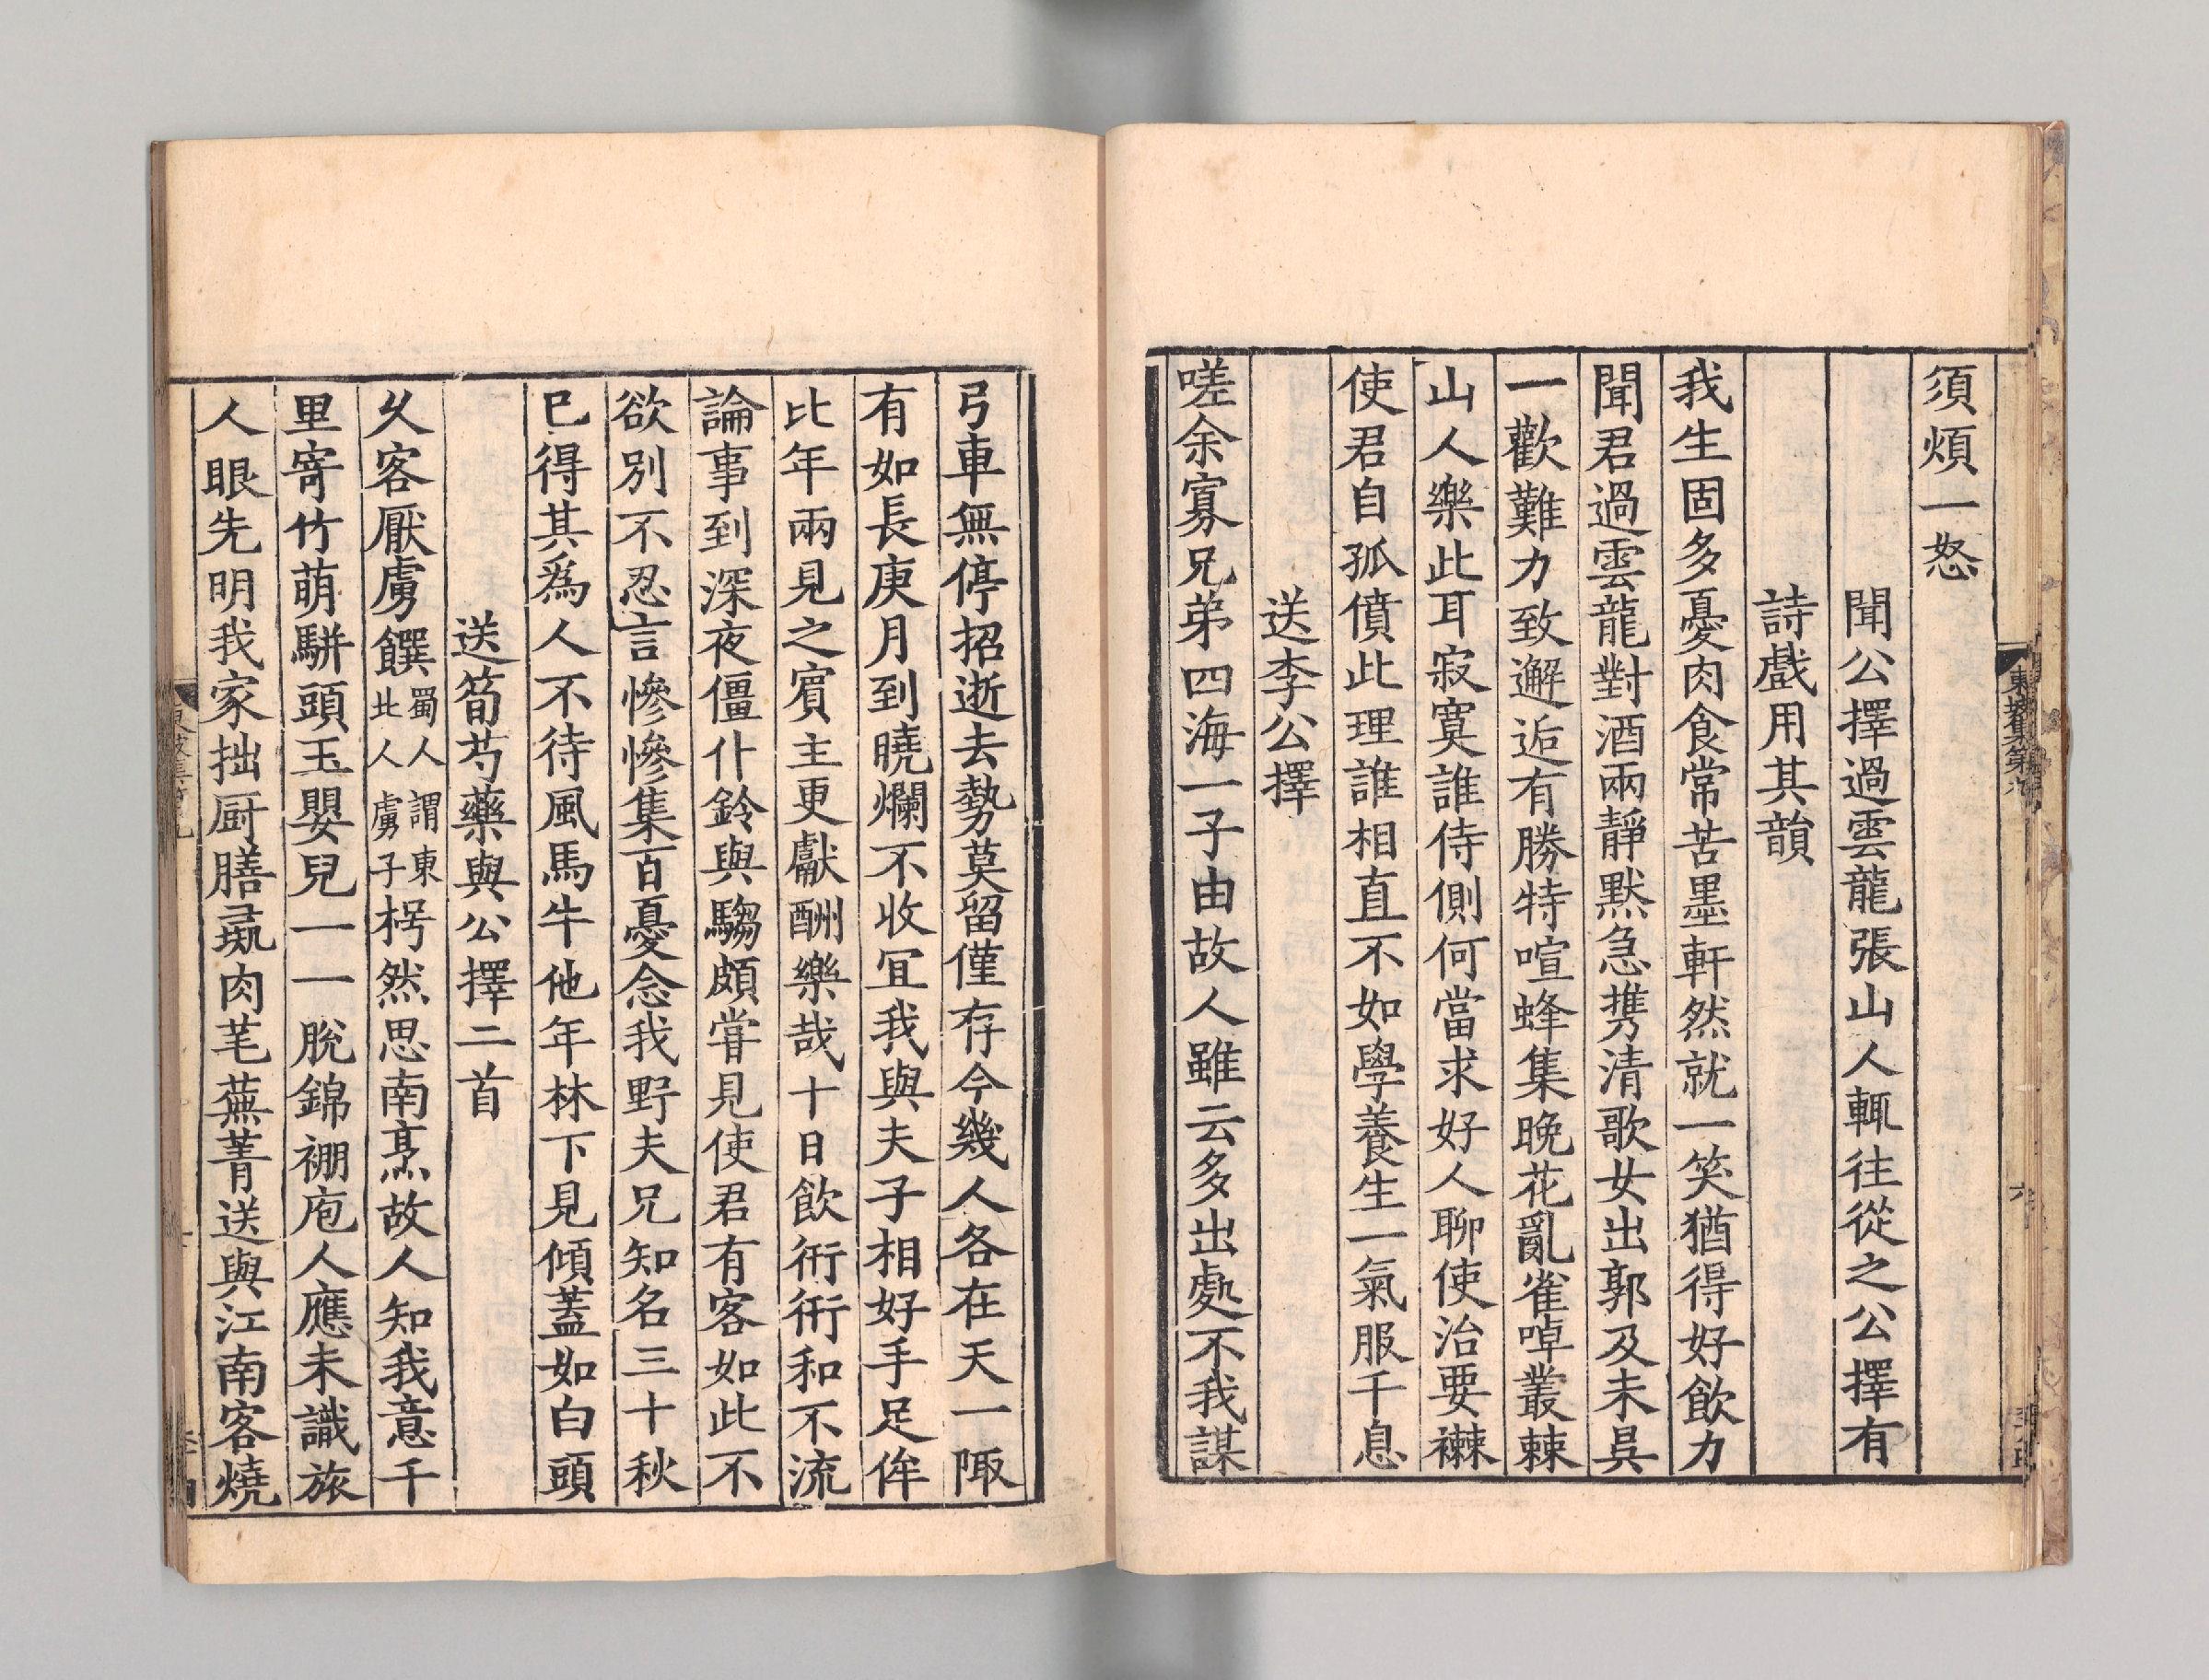 須煩一怒
聞公擇過雲龍張山人輒往從之公擇有
詩戲用其韻
我生固多憂肉食常苦墨軒然就一笑猶得好飲力
聞君過雲龍對酒兩靜默急攜清歌女出郭及未昃
一歡難力致邂逅有勝特喧蜂集晚花亂雀啅叢棘
山人樂此耳寂寞誰侍側何當求好人聊使治要襋
使君自孤僨此理誰相直不如學養生一氣服千息
送李公擇
嗟余寡兄弟四海一子由故人雖云多出處不我謀
弓車無停招逝去勢莫留僅存今幾人各在天一陬
有如長庚月到曉爛不收宜我與夫子相好手足侔
比年兩見之賓主更獻酬樂哉十日飲衎衎和不流
論事到深夜僵仆鈴與騶頗嘗見使君有客如此不
欲別不忍言慘慘集百憂念我野夫兄知名三十秋
已得其爲人不待風馬牛他年林下見傾蓋如白頭
送筍芍藥與公擇二首
久客厭虜饌蜀人謂東北人虜子枵然思南烹故人知我意千
里寄竹萌駢頭玉嬰兒一一脫錦褓庖人應未識旅
人眼先明我家拙厨膳彘肉芼蕪菁送與江南客燒